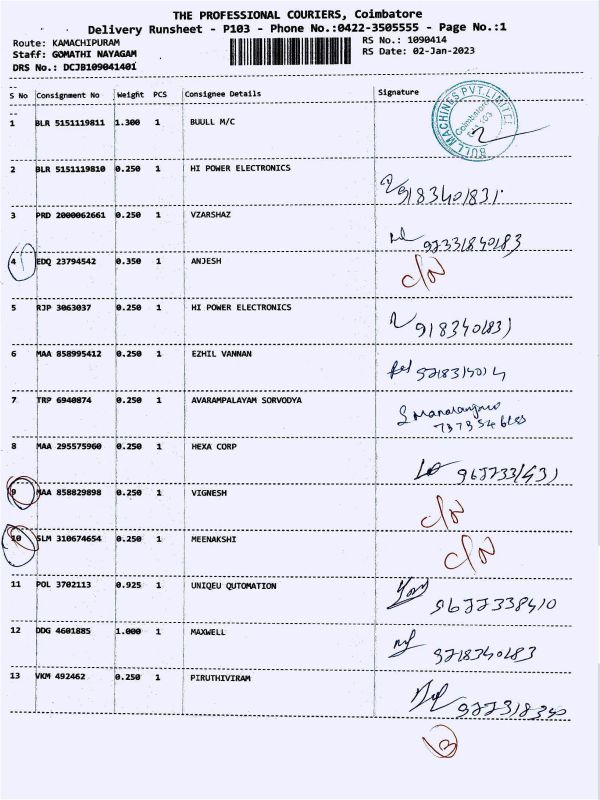 THE PROFESSIONAL COURIERS, Coimbatore
Delivery Runsheet - P103 - Phone No.:0422-3505555 - Page No.:1
Route: KAMACHIPURAM
Staff: GOMATHI NAYAGAM
DRS No.: DCJB109041401
RS No.: 1090414
RS Date: 02-Jan-2023
S No Consignment No Weight PCS Consignee Details Signature
1 BLR 5151119811 1.300 1 BUULL M/C
BULL MACHINES PVT. LIMITED
Coimbatore
2 BLR 5151119810 0.250 1 HI POWER ELECTRONICS
9183401831
3 PRD 2000062661 0.250 1 VZARSHAZ
4 EDQ 23794542 0.350 1 ANJESH
C/N
5 RJP 3063037 0.250 1 HI POWER ELECTRONICS
6 MAA 858995412 0.250 1 EZHIL VANNAN
7 TRP 6940874 0.250 1 AVARAMPALAYAM SORVODYA
8 MAA 295575960 0.250 1 HEXA CORP
9 MAA 858829898 0.250 1 VIGNESH
C/N
10 SLM 310674654 0.250 1 MEENAKSHI
C/N
11 POL 3702113 0.925 1 UNIQEU QUTOMATION
12 DDG 4601885 1.000 1 MAXWELL
13 VKM 492462 0.250 1 PIRUTHIVIRAM